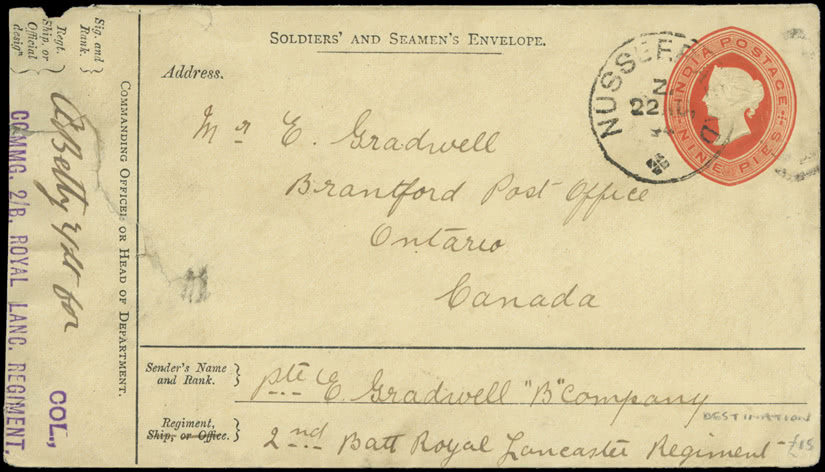 SOLDIERS' AND SEAMEN'S ENVELOPE.
Address.
INDIA POSTAGE
NINE PIES
NUSSEER D
22 JU
Mr E. Gradwell
Brantford Post Office
Ontario
Canada
Sender's Name
and Rank.
pte E. Gradwell "B" Company
Regiment,
Ship, or Office.
2nd Batt Royal Lancaster Regiment
DESTINATION
£15
Sig. and
Rank.
Regt.
Ship, or
Official
desigⁿ
COMMANDING OFFICER OR HEAD OF DEPARTMENT.
for
COL.,
COMMG. 2/B. ROYAL LANC. REGIMENT.